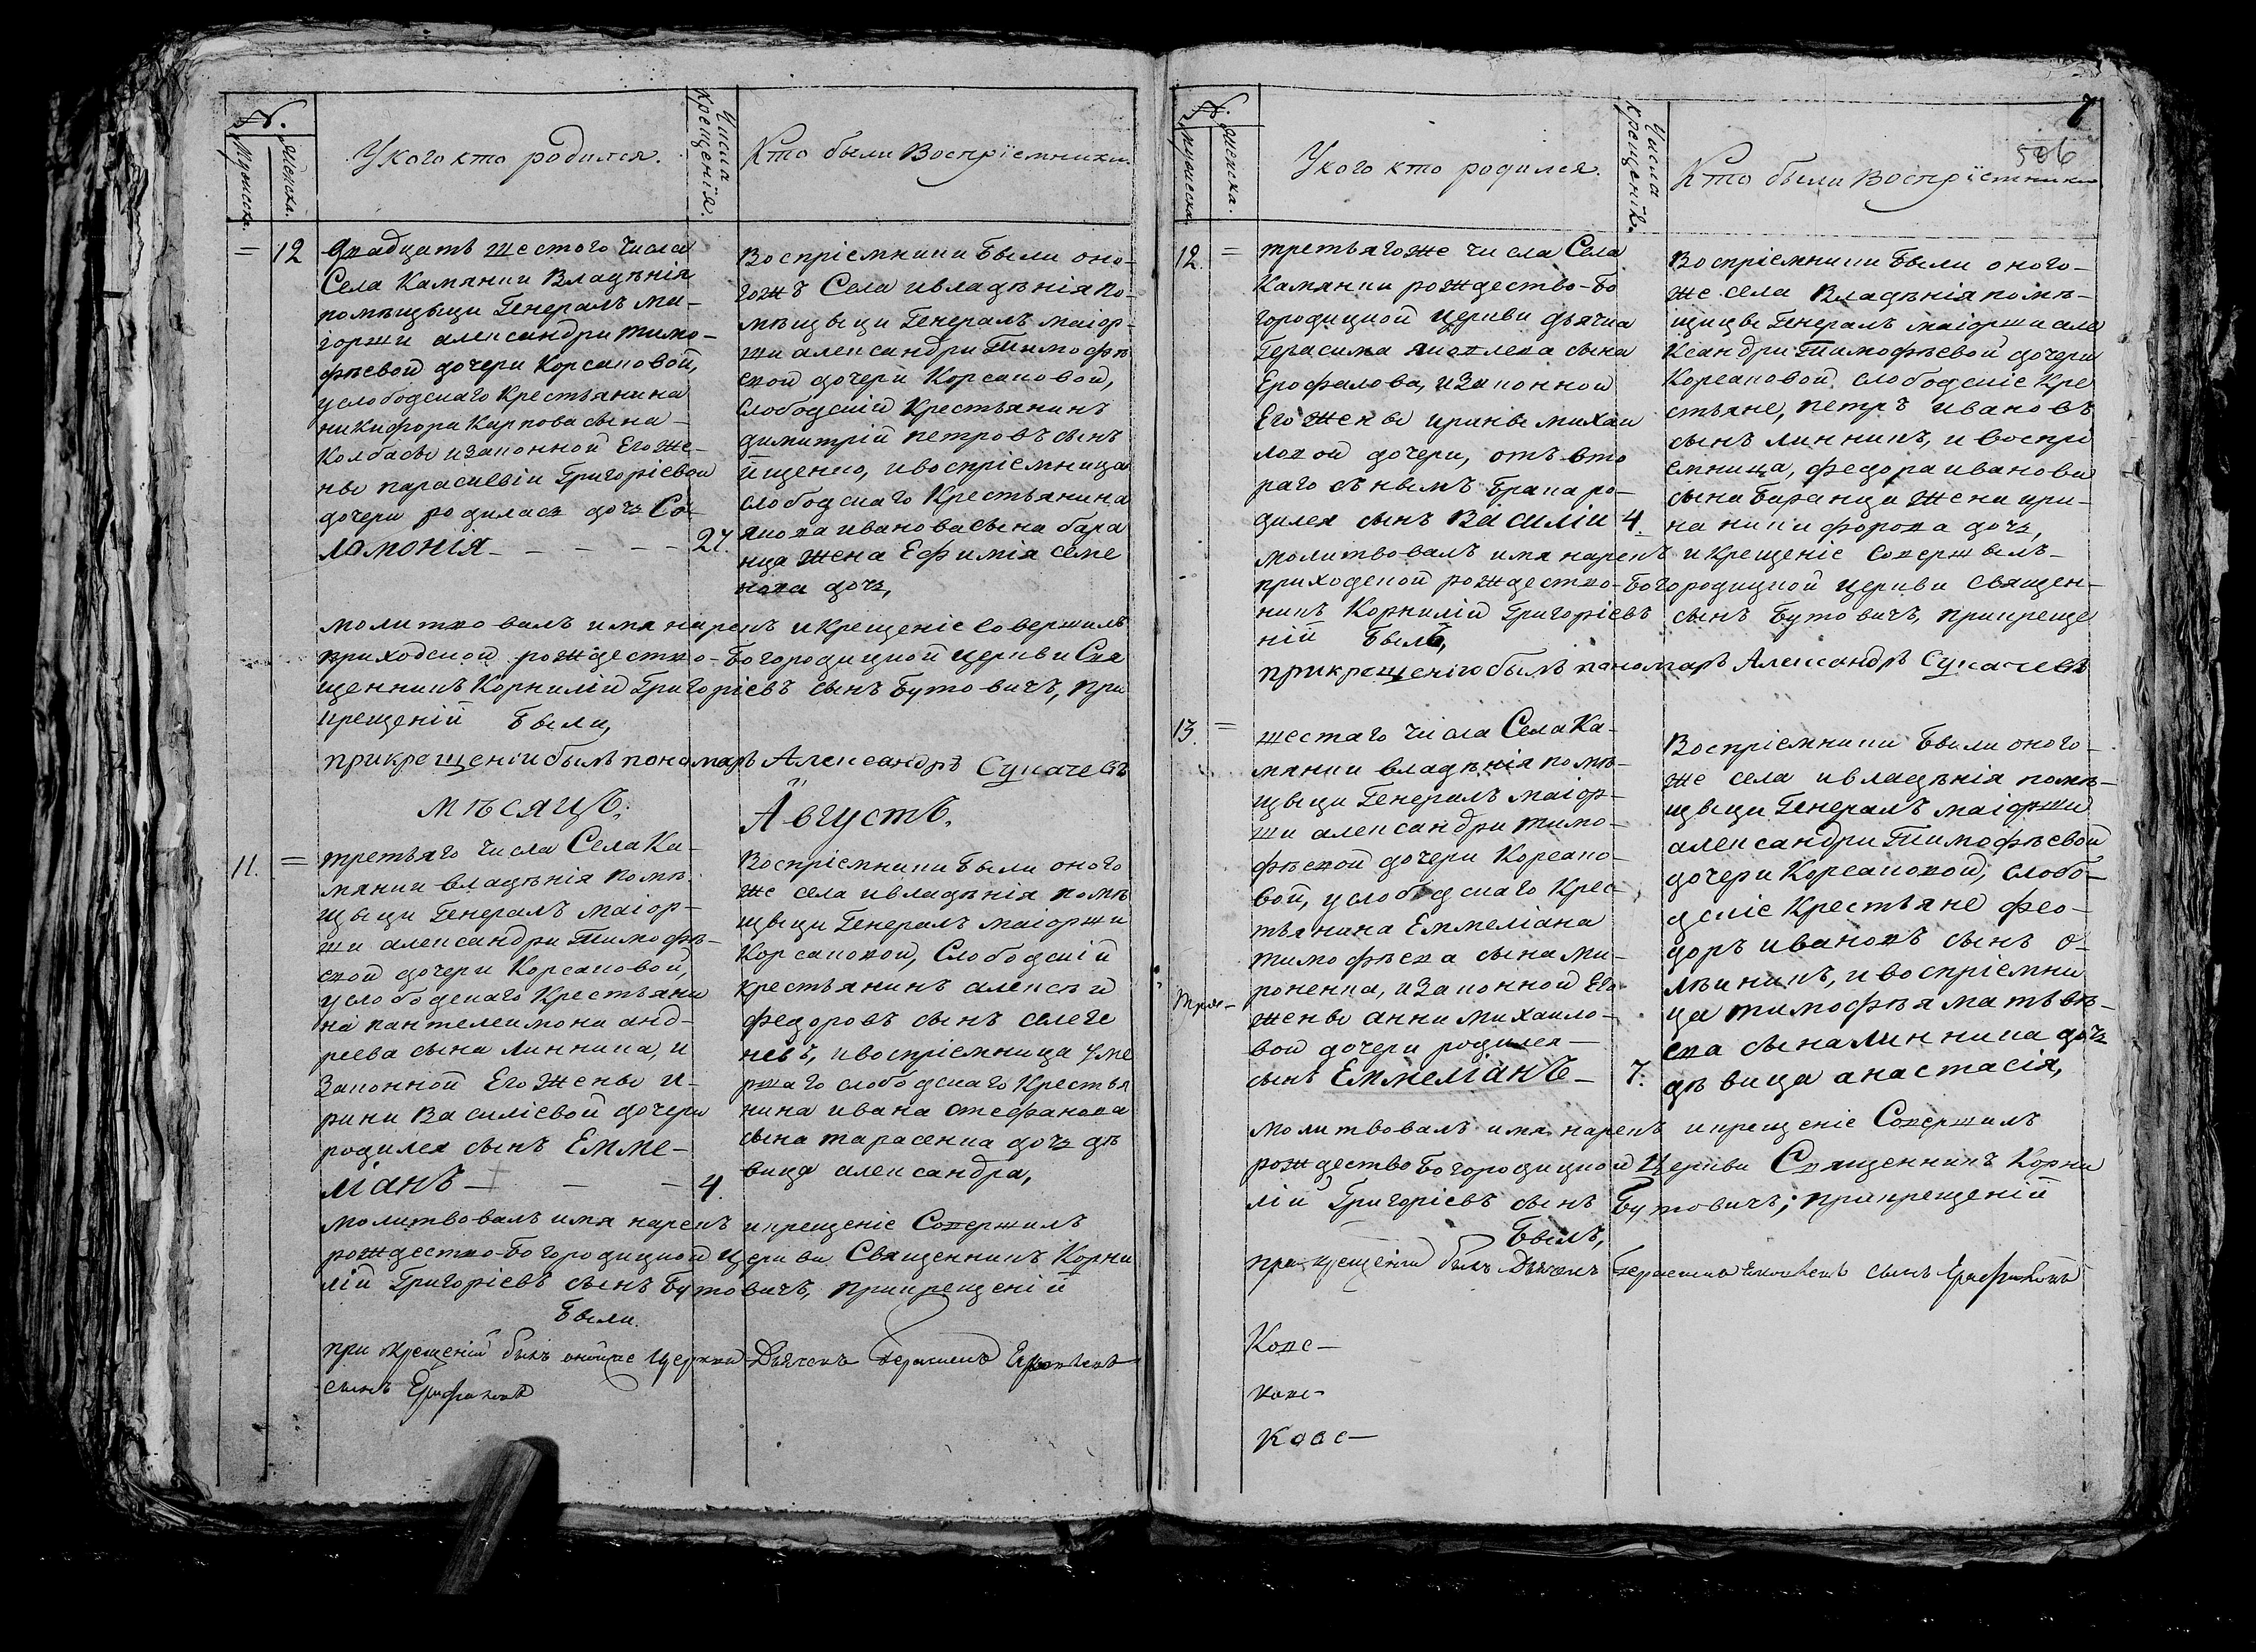 №.
Мужеска.
Женска.
У кого кто родился.
Числа
крещенія.
Кто были Воспрїемники.
= 12
Двадцать шестого числа
Села Камянки Владѣнія
помѣщыци Генералъ ма-
іорши александри тимо-
фѣевой дочери Корсаковой,
услободскаго крестьянина
никифора Карпова сына
Колбасы изаконной Его же-
ны параскевіи Григоріевой
дочери родилась дочь Со-
ломонія - - - - 27.
Воспріемники были оно-
гожъ Села ивладѣнія по-
мѣщыци Генералъ маіор-
ши александри Тимофѣ
евой дочери Корсаковой,
Слободскій крестьянинъ
димитрій петровъ сынъ
йщенко, ивоспріемница
слободскаго крестьянина
якова иванова сына бара
нца жена Ефимія семе
нова дочь,
молитвовалъ имя нарекъ икрещеніе совершилъ
приходской рождество-Богородицкой церкви Свя
щенникъ Корнилій Григоріевъ сынъ Бутовичъ, при
крещеній были,
прикрещеніи былъ пономарь Александръ Сукачевъ
мѣсяцъ: Августъ.
11. =
третьяго числа Села Ка-
мянки владѣнія помѣ-
щыци Генералъ маіор-
ши александри Тимофѣ-
евой дочери Корсаковой,
услободскаго крестьяни
на пантелеимона анд-
реева сына линника, и
законной Его жены и-
рини Василіевой дочери
родился сынъ Емме-
ліанъ - - - 4.
Воспріемники были оного
же села ивладѣнія помѣ
щыци Генералъ маіорши
Корсаковой, Слободскій
крестьянинъ алексѣй
федоровъ сынъ селеге
невъ, ивоспріемница уме
ршаго слободскаго крестья
нина ивана стефанова
сына тарасенка дочь дѣ
вица александра,
молитвовалъ имя нарекъ икрещеніе Совершилъ
рождество-Богородицкой церкви Священникъ Корни
лій Григоріевъ сынъ Бутовичъ, прикрещеній
были.
при крещеній былъ церкви Дьячекъ Герасимъ
сынъ
7
506
№.
Мужеска.
Женска.
У кого кто родился.
Числа
Крещенія.
Кто были Воспрїемники
12. =
третьягоже числа Села
Камянки рождество-Бо
городицкой церкви дьячка
Герасима яковлева сына
Ерофалова, изаконной
Его жены ирины михаи
ловой дочери, отъ вто
раго сънымъ брака ро-
дился сынъ Василіи 4.
Воспріемники были оного-
же села Владѣнія помѣ-
щицы Генералъ маіорши але
ксандри Тимофѣевой дочери
Корсаковой слободскіе кре
стьяне, петръ ивановъ
сынъ линникъ, и воспрі
емница, федора иванова
сына баранца жена ири-
на никифорова дочь,
молитвовалъ имя нарекъ икрещеніе совершилъ
приходской рождество-Богородицкой церкви священ-
никъ Корнилій Григоріевъ сынъ Бутовичъ, прикреще
ній былъ,
прикрещенію былъ пономарь Александръ Сукачевъ
13. =
шестаго числа Села Ка-
мянки владѣнія помѣ-
щыци Генералъ маіор-
ши александри тимо-
фѣевой дочери Корсако-
вой, услободскаго крес-
тьянина Еммеліана
тимофѣева сына ми-
роненка, изаконной Его
жены анни михаило-
вой дочери родился
сынъ Еммеліанъ - 7.
Воспріемники были оного-
же села ивладѣнія помѣ-
щыци Генералъ маіорши
александри Тимофѣевой
дочери Корсаковой, слобо-
дскіе крестьяне фео-
доръ ивановъ сынъ
ивоспріемни
ца тимофѣя матвѣ-
ева сына линника дочь
дѣвица анастасія,
молитвовалъ имя нарекъ икрещеніе Совершилъ
рождество Богородицкой Церкви Священникъ Корни
лій Григоріевъ сынъ Бутовичъ; прикрещеній
былъ,
при крещеніи былъ Дьячекъ Герасимъ сынъ